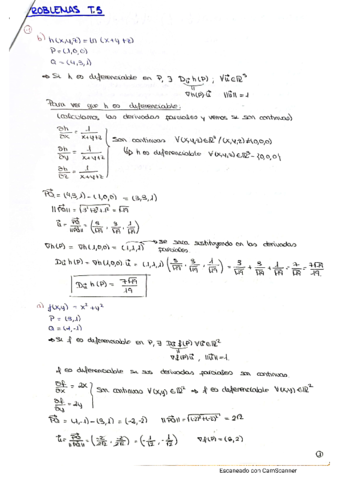 PROBLEMAS T.5
b) h(x,y,z) = ln (x+y+z)
P = (1,0,0)
Q = (4,3,1)
→ Si h es diferenciable en P, ∃ Dū h(P), ∀ū∈ℝ³
∇h(P)·ū ‖ū‖=1
Para ver que h es diferenciable:
(calculamos las derivadas parciales y vemos si son continuas)
∂h/∂x = 1/(x+y+z)
∂h/∂y = 1/(x+y+z) Son continuas ∀(x,y,z)∈ℝ³/(x,y,z)≠(0,0,0)
↳ h es diferenciable ∀(x,y,z)∈ℝ³-{0,0,0}
∂h/∂z = 1/(x+y+z)
PQ = (4,3,1)-(1,0,0) = (3,3,1)
‖PQ‖ = √(3²+3²+1²) = √19
ū = PQ/‖PQ‖ = (3/√19, 3/√19, 1/√19)
∇h(P) = ∇h(1,0,0) = (1,1,1) → se saca sustituyendo en las derivadas
parciales.
Dū h(P) = ∇h(1,0,0)·ū = (1,1,1)(3/√19, 3/√19, 1/√19) = 3/√19 + 3/√19 + 1/√19 = 7/√19 = 7√19/19
Dū h(P) = 7√19/19
a) f(x,y) = x² + y²
P = (3,1)
Q = (1,-1)
→ Si f es diferenciable en P, ∃ Dū f(P) ∀ū∈ℝ²
∇f(P)·ū , ‖ū‖=1
f es diferenciable si sus derivadas parciales son continuas.
∂f/∂x = 2x
Son continuas ∀(x,y)∈ℝ² → f es diferenciable ∀(x,y)∈ℝ²
∂f/∂y = 2y
PQ = (1,-1)-(3,1) = (-2,-2) ‖PQ‖ = √((-2)²+(-2)²) = 2√2
ū = PQ/‖PQ‖ = (-2/2√2, -2/2√2) = (-1/√2, -1/√2) ∇f(P) = (6,2)
①
Escaneado con CamScanner